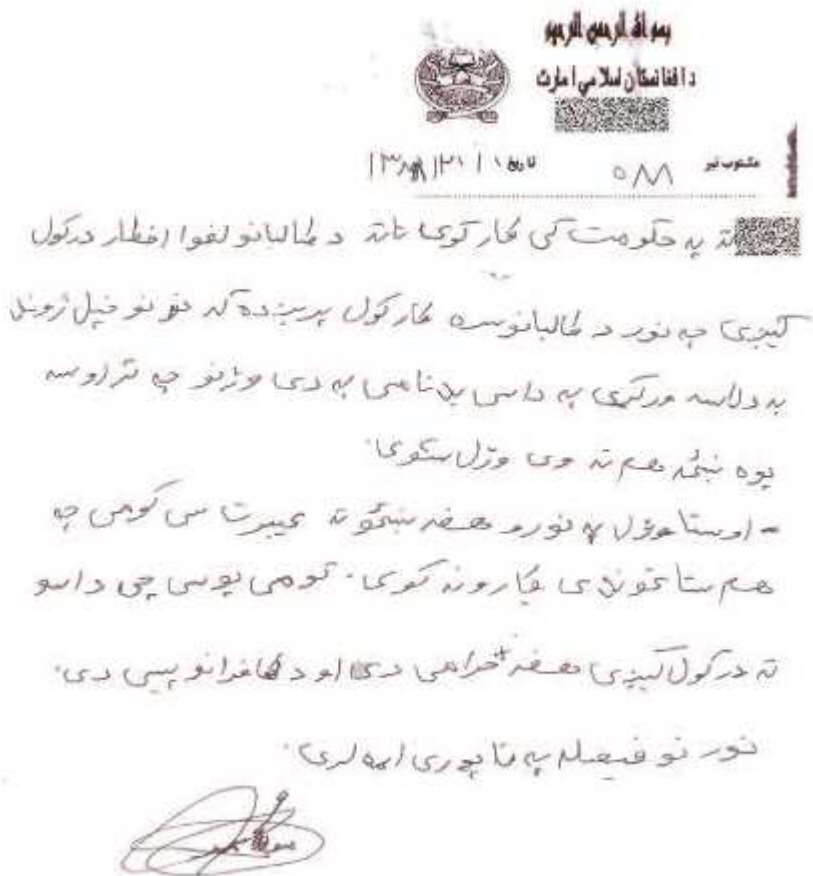 بسم الله الرحمن الرحيم
د افغانستان اسلامي امارت
مکتوب نمبر ۵۸۸ تاریخ ۱/۲۱/۱۳۸۸
ته په حکومت کی کار کوی تاته د طالبانو لخوا اخطار درکول
کیږی چه نور د طالبانو سره کار کول پریږده که نو نو خپل ژوند
به دلاسه ورکړی په داسی بدنامی به دی وژنو چه تر اوسه
یوه ښځه هم نه وی وژل شوی.
- او ستا وژل به نورو هغه ښځو ته عبرت سی کومی چه
هم ستا غوندی کارونه کوی. کومی پیسی چی تاسو
ته درکول کیږی هغه حرامی دی او د کافرانو پیسی دی.
نور نو فیصله په تا پوری اړه لری.